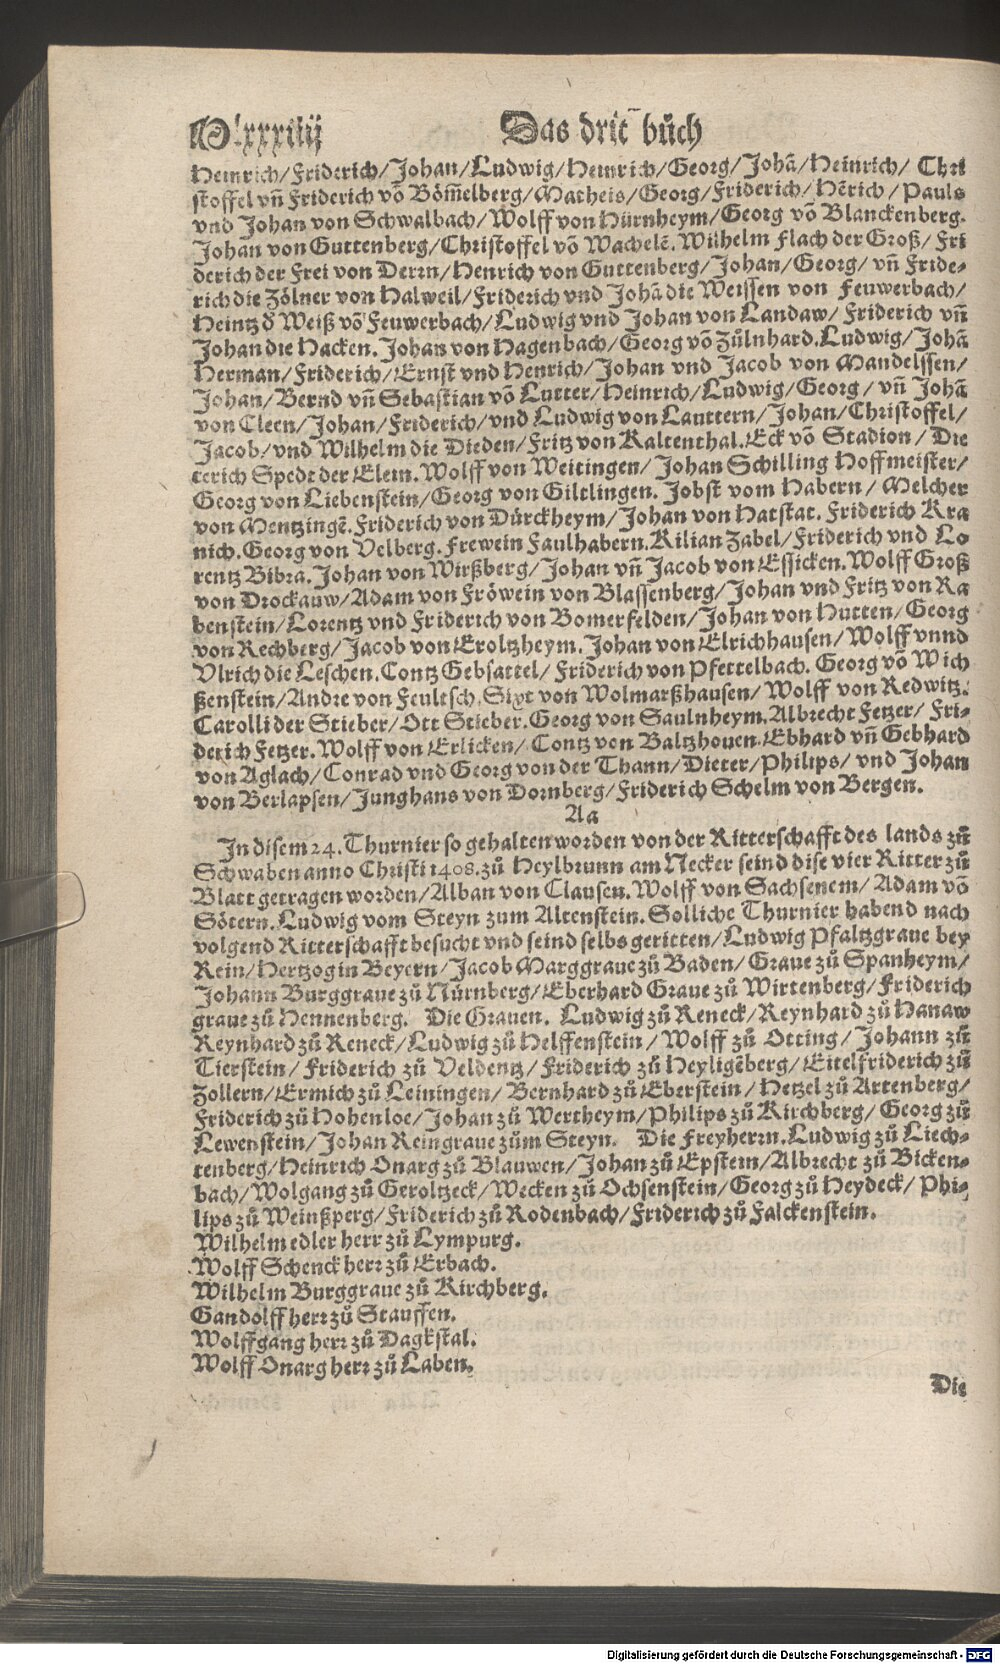 Das drit buͦch
Heinrich/Friderich/Johan/Ludwig/Heinrich/Georg/Johā/Heinrich/ Chri
stoffel vñ Friderich vō Böm̄elberg/Matheis/Georg/Friderich/Hērich/ Pauls
vnd Johan von Schwalbach/Wolff von Hürnheym/Georg vō Blanckenberg.
Johan von Guttenberg/Christoffel vō Wachelē. Wilhelm Flach der Groß/ Fri
derich der Frei von Derrn/Henrich von Guttenberg/Johan/Georg/ vñ Fride-
rich die Zölner von Halweil/Friderich vnd Johā die Weissen von Feuwerbach/
Heintz d Weiß vō Feuwerbach/Ludwig vnd Johan von Landaw/ Friderich vñ
Johan die Hacken. Johan von Hagenbach/Georg vō Zuͦlnhard. Ludwig/ Johā
Herman/Friderich/Ernst vnd Henrich/Johan vnd Jacob von Mandelssen/
Johan/Bernd vñ Sebastian vō Lutter/Heinrich/Ludwig/Georg/ vñ Johā
von Cleen/Johan/Friderich/vnd Ludwig von Lauttern/Johan/Christoffel/
Jacob/vnd Wilhelm die Dieden/Fritz von Kaltenthal. Eck vō Stadion/ Die
terich Spedt der Elem. Wolff von Weitingen/Johan Schilling Hoffmeister/
Georg von Liebenstein/Georg von Giltlingen. Jobst vom Habern/ Melcher
von Mentzingē. Friderich von Dürckheym/Johan von Hatstat. Friderich Kra
nich. Georg von Velberg. Frewein Faulhabern. Kilian Zabel/Friderich vnd Lo
rentz Bibra. Johan von Wirßberg/Johan vñ Jacob von Essicken. Wolff Groß
von Drockauw/Adam von Fröwein von Blassenberg/Johan vnd Fritz von Ra
benstein/Lorentz vnd Friderich von Bomerfelden/Johan von Hutten/ Georg
von Rechberg/Jacob von Eroltzheym. Johan von Elrichhausen/Wolff vnnd
Vlrich die Leschen. Contz Gebsattel/ Friderich von Pfettelbach. Georg vō Wich
ßenstein/Andre von Feultsch. Sixt von Wolmarßhausen/ Wolff von Redwitz.
Carolli der Stieber/Ott Stieber. Georg von Saulnheym. Albrecht Fetzer/ Fri-
derich Fetzer. Wolff von Erlicken/ Contz von Baltzhouen. Ebhard vñ Gebhard
von Aglach/Conrad vnd Georg von der Thann/Dieter/Philips/ vnd Johan
von Berlapsen/Junghans von Dornberg/Friderich Schelm von Bergen.
Aa
In disem 24. Thurnier so gehalten worden von der Ritterschafft des lands zuͦ
Schwaben anno Christi 1408. zuͦ Heylbrunn am Necker seind dise vier Ritter zuͦ
Blatt getragen worden/Alban von Clausen. Wolff von Sachsenem/ Adam vō
Sötern. Ludwig vom Steyn zum Altenstein. Solliche Thurnier habend nach
volgend Ritterschafft besucht vnd seind selbs geritten/Ludwig Pfaltzgraue bey
Rein/Hertzog in Beyern/Jacob Marggraue zuͦ Baden/ Graue zuͦ Spanheym/
Johann Burggraue zuͦ Nürnberg/Eberhard Graue zuͦ Wirtenberg/Friderich
graue zuͦ Hennenberg. Die Grauen. Ludwig zuͦ Reneck/Reynhard zuͦ Hanaw
Reynhard zuͦ Reneck/Ludwig zuͦ Helffenstein/Wolff zuͦ Otting/ Johann zuͦ
Tierstein/ Friderich zuͦ Veldentz/Friderich zuͦ Heyligēberg/Eitelfriderich zuͦ
Zollern/Ermich zuͦ Leiningen/ Bernhard zuͦ Eberstein/ Hetzel zuͦ Artenberg/
Friderich zuͦ Hohenloe/Johan zuͦ Wertheym/Philips zuͦ Kirchberg/ Georg zuͦ
Lewenstein/Johan Reingraue zuͦm Steyn. Die Freyherrn. Ludwig zuͦ Liech-
tenberg/Heinrich Onarg zuͦ Blauwen/Johan zuͦ Epstein/Albrecht zuͦ Bicken-
bach/Wolgang zuͦ Geroltzeck/Wecken zuͦ Ochsenstein/Georg zuͦ Heydeck/ Phi-
lips zuͦ Weinßperg/Friderich zuͦ Rodenbach/Friderich zuͦ Falckenstein.
Wilhelm edler herr zuͦ Lympurg.
Wolff Schenck herr zuͦ Erbach.
Wilhelm Burggraue zuͦ Kirchberg.
Gandolff herr zuͦ Stauffen.
Wolffgang herr zuͦ Dagkstal.
Wolff Onarg herr zuͦ Laben.
Die
Digitalisierung gefördert durch die Deutsche Forschungsgemeinschaft - DFG